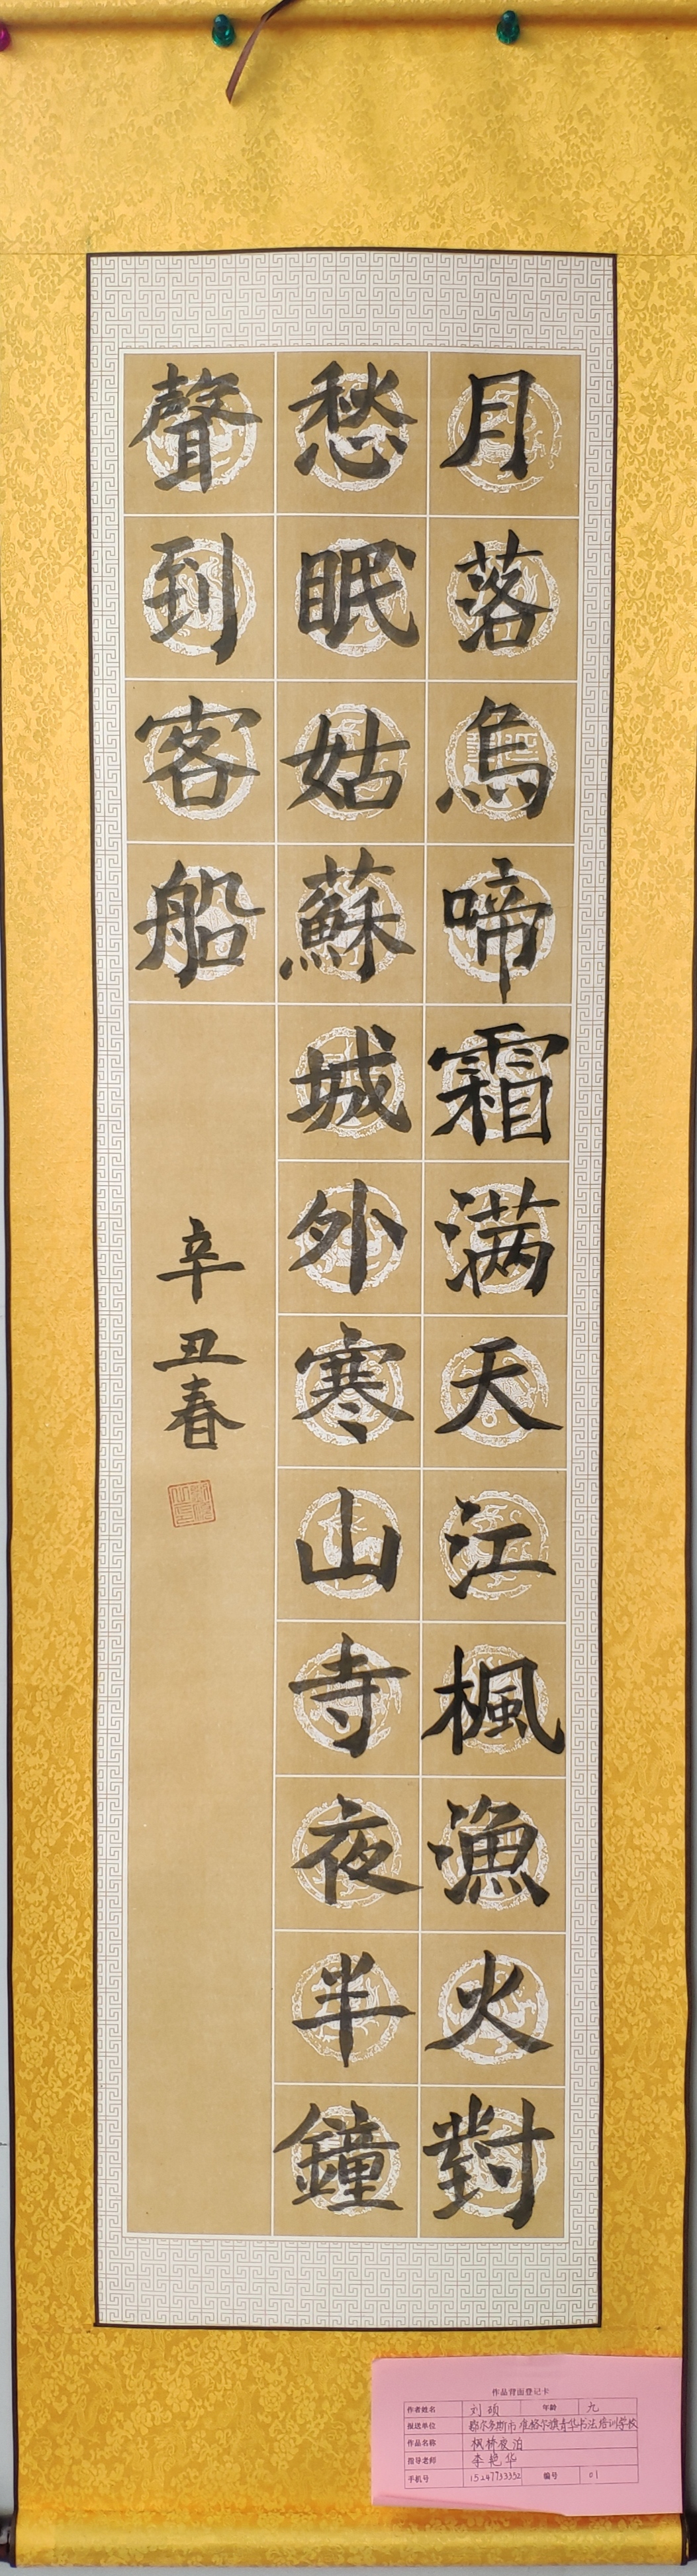 月落烏啼霜满天江楓漁火對
愁眠姑蘇城外寒山寺夜半鐘
聲到客船
辛丑春
作品背面登记卡
作者姓名 刘硕 年龄 九
报送单位 鄂尔多斯市准格尔旗青华书法培训学校
作品名称 枫桥夜泊
指导老师 李艳华
手机号 15247733352 编号 01